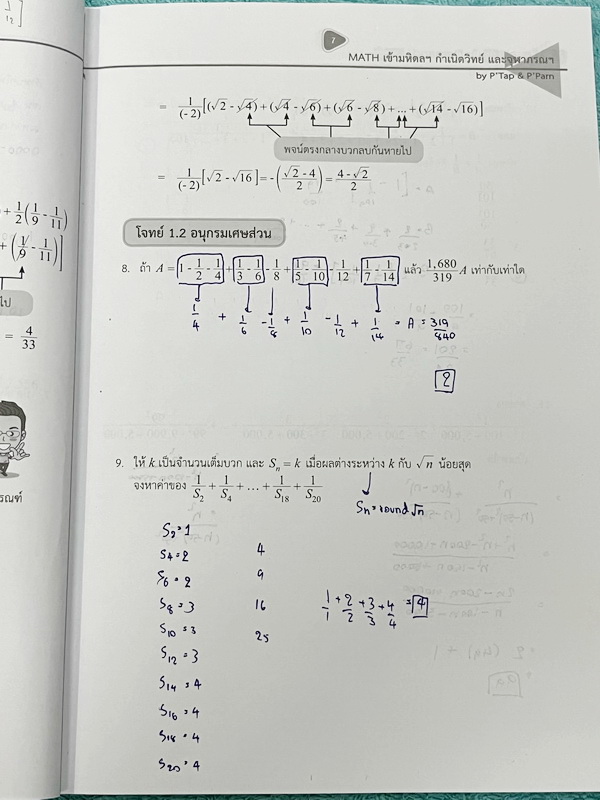 7
MATH เข้ามหิดลฯ กำเนิดวิทย์ และจุฬาภรณฯ
by P'Tap & P'Parn
= 1/(-2) [(√2 - √4) + (√4 - √6) + (√6 - √8) + ... + (√14 - √16)]
พจน์ตรงกลางบวกลบกันหายไป
= 1/(-2) [√2 - √16] = -((√2 - 4)/2) = (4 - √2)/2
โจทย์ 1.2 อนุกรมเศษส่วน
8. ถ้า A = 1 - 1/2 - 1/4 + 1/3 - 1/6 - 1/8 + 1/5 - 1/10 - 1/12 + 1/7 - 1/14 แล้ว 1,680/319 A เท่ากับเท่าใด
1/4 + 1/6 - 1/8 + 1/10 - 1/12 + 1/14 = A = 319/840
2
9. ให้ k เป็นจำนวนเต็มบวก และ Sn = k เมื่อผลต่างระหว่าง k กับ √n น้อยสุด
จงหาค่าของ 1/S2 + 1/S4 + ... + 1/S18 + 1/S20
Sn = round √n
S2 = 1
S4 = 2 4
S6 = 2 9
S8 = 3 16
1/1 + 2/2 + 3/3 + 4/4 = 4
S10 = 3 25
S12 = 3
S14 = 4
S16 = 4
S18 = 4
S20 = 4
+ 1/2 (1/9 - 1/11)
+ (1/9 - 1/11)]
ไป
= 4/33
รณฑ์